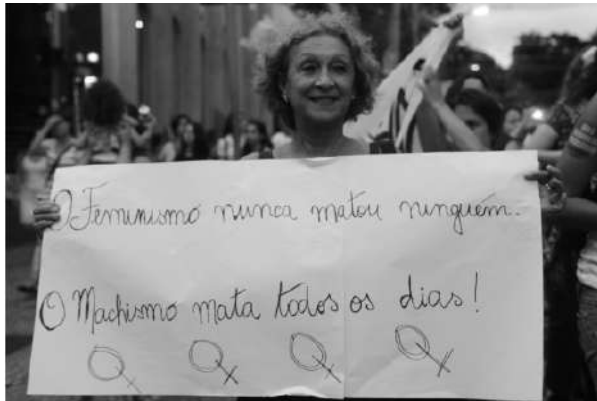 O Feminismo nunca matou ninguém.
O Machismo mata todos os dias!